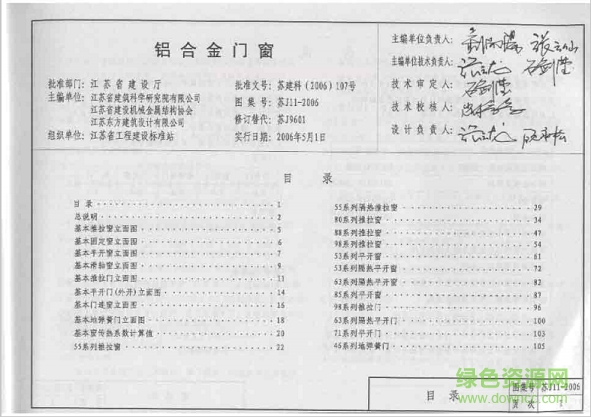 铝合金门窗
批准部门：江苏省建设厅
主编单位：江苏省建筑科学研究院有限公司
江苏省建设机械金属结构协会
江苏东方建筑设计有限公司
组织单位：江苏省工程建设标准站
批准文号：苏建科（2006）107号
图集号：苏J11-2006
修订替代：苏J9601
实行日期：2006年5月1日
主编单位负责人：
主编单位技术负责人：
技术审定人：
技术校核人：
设计负责人：
目录
目录 1
总说明 2
基本推拉窗立面图 5
基本固定窗立面图 6
基本平开窗立面图 7
基本滑轴窗立面图 9
基本推拉门立面图 13
基本平开门(外开)立面图 14
基本门连窗立面图 16
基本地弹簧门立面图 18
基本窗传热系数计算值 20
55系列推拉窗 22
55系列隔热推拉窗 29
80系列推拉窗 34
88系列推拉窗 47
98系列推拉窗 54
53系列平开窗 61
53系列隔热平开窗 72
63系列隔热平开窗 82
85系列平开窗 87
98系列推拉门 96
63系列隔热平开门 100
71系列平开门 103
46系列地弹簧门 105
目录
图集号 苏J11-2006
页次 1
绿色资源网
www.downcc.com